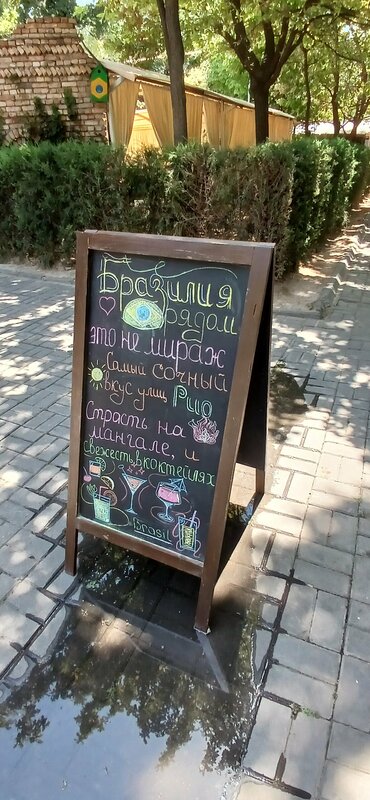 Бразилия
рядом
это не мираж
Самый сочный
вкус улиц Рио
Страсть на
мангале, и
Свежесть в коктейлях
Brasil